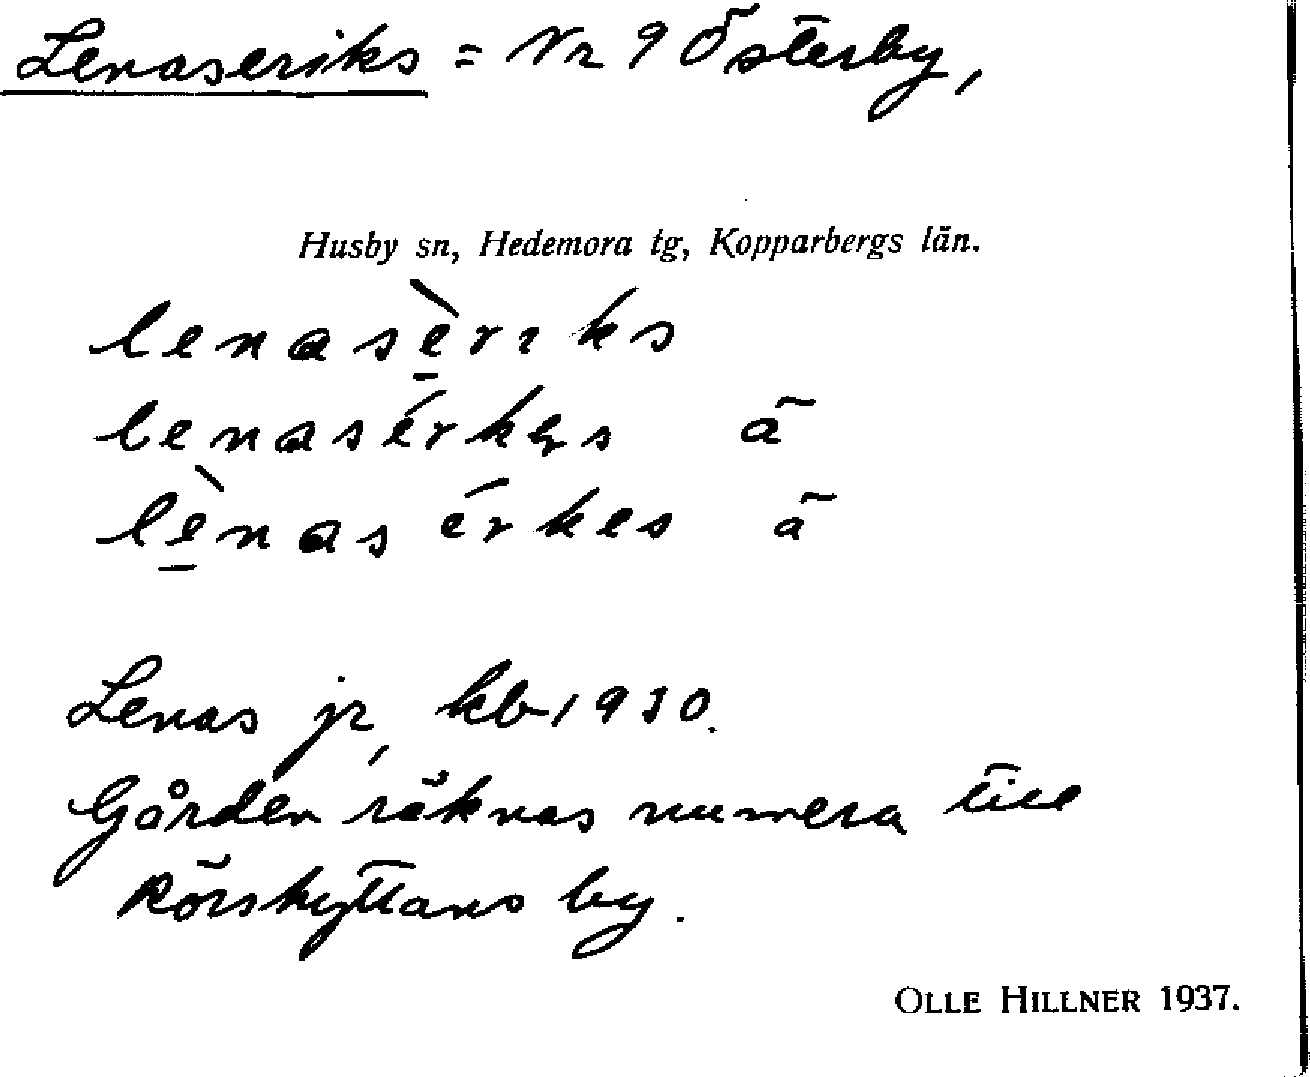 Lenaseriks = Nr 9 Österby,
Husby sn, Hedemora tg, Kopparbergs län.
lenasèriks
lenasérkes ä
lènas érkes ä
Lenas jr, kb 1930.
Gården räknas numera till
Rörshyttans by.
OLLE HILLNER 1937.